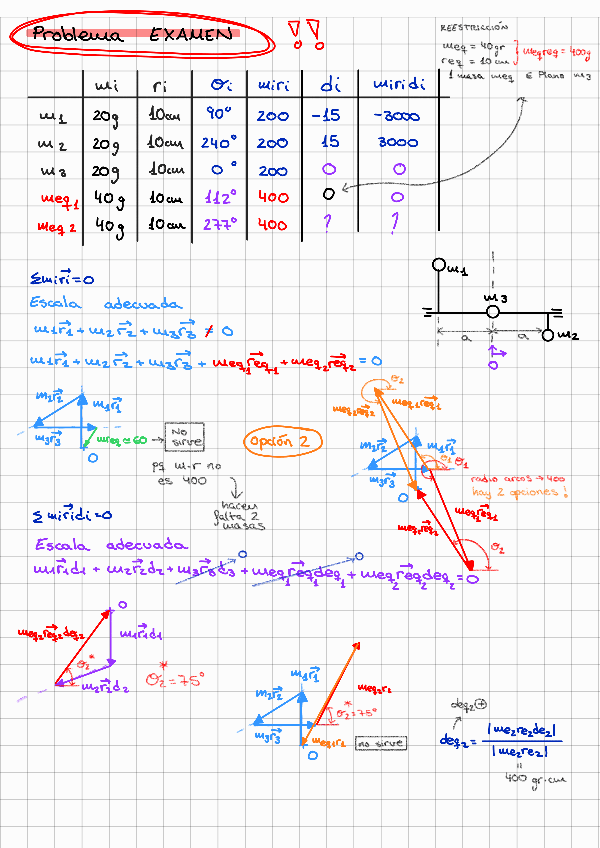 Problema EXAMEN !!
REESTRICCIÓN
meq = 40gr
req = 10cm
} meqreq = 400g
1 masa meq ∈ Plano m3
mi ri σi miri di miridi
m1 20g 10cm 90° 200 -15 -3000
m2 20g 10cm 240° 200 15 3000
m3 20g 10cm 0° 200 0 0
meq1 40g 10cm 112° 400 0 0
meq2 40g 10cm 277° 400 ? ?
Σmiri=0
Escala adecuada
m1r1 + m2r2 + m3r3 ≠ 0
m1r1 + m2r2 + m3r3 + meq1req1 + meq2req2 = 0
m1
m3
m2
a a
0
m2r2
m1r1
m3r3
meq≃60 →
0
NO
SIRVE
pq m·r no
es 400
hacen
falta 2
masas
Opción 2
σ2
meq2req2
meq1req1
m2r2
m1r1
σ1 σ1
m3r3
0
radio arcos → 400
hay 2 opciones!
meq2req2
meq1req1
σ2
Σmiridi=0
Escala adecuada
0 0
m1r1d1 + m2r2d2 + m3r3d3 + meq1req1deq1 + meq2req2deq2 = 0
0
meq2req2deq2
m1r1d1
σ2*
m2r2d2
σ2* = 75°
m1r1
m2r2
meq2r2
σ2* = 75°
m3r3
meq1r2
0
no sirve
deq2 ⊕
deq2 = |me2re2de2|
|me2re2|
=
400 gr·cm